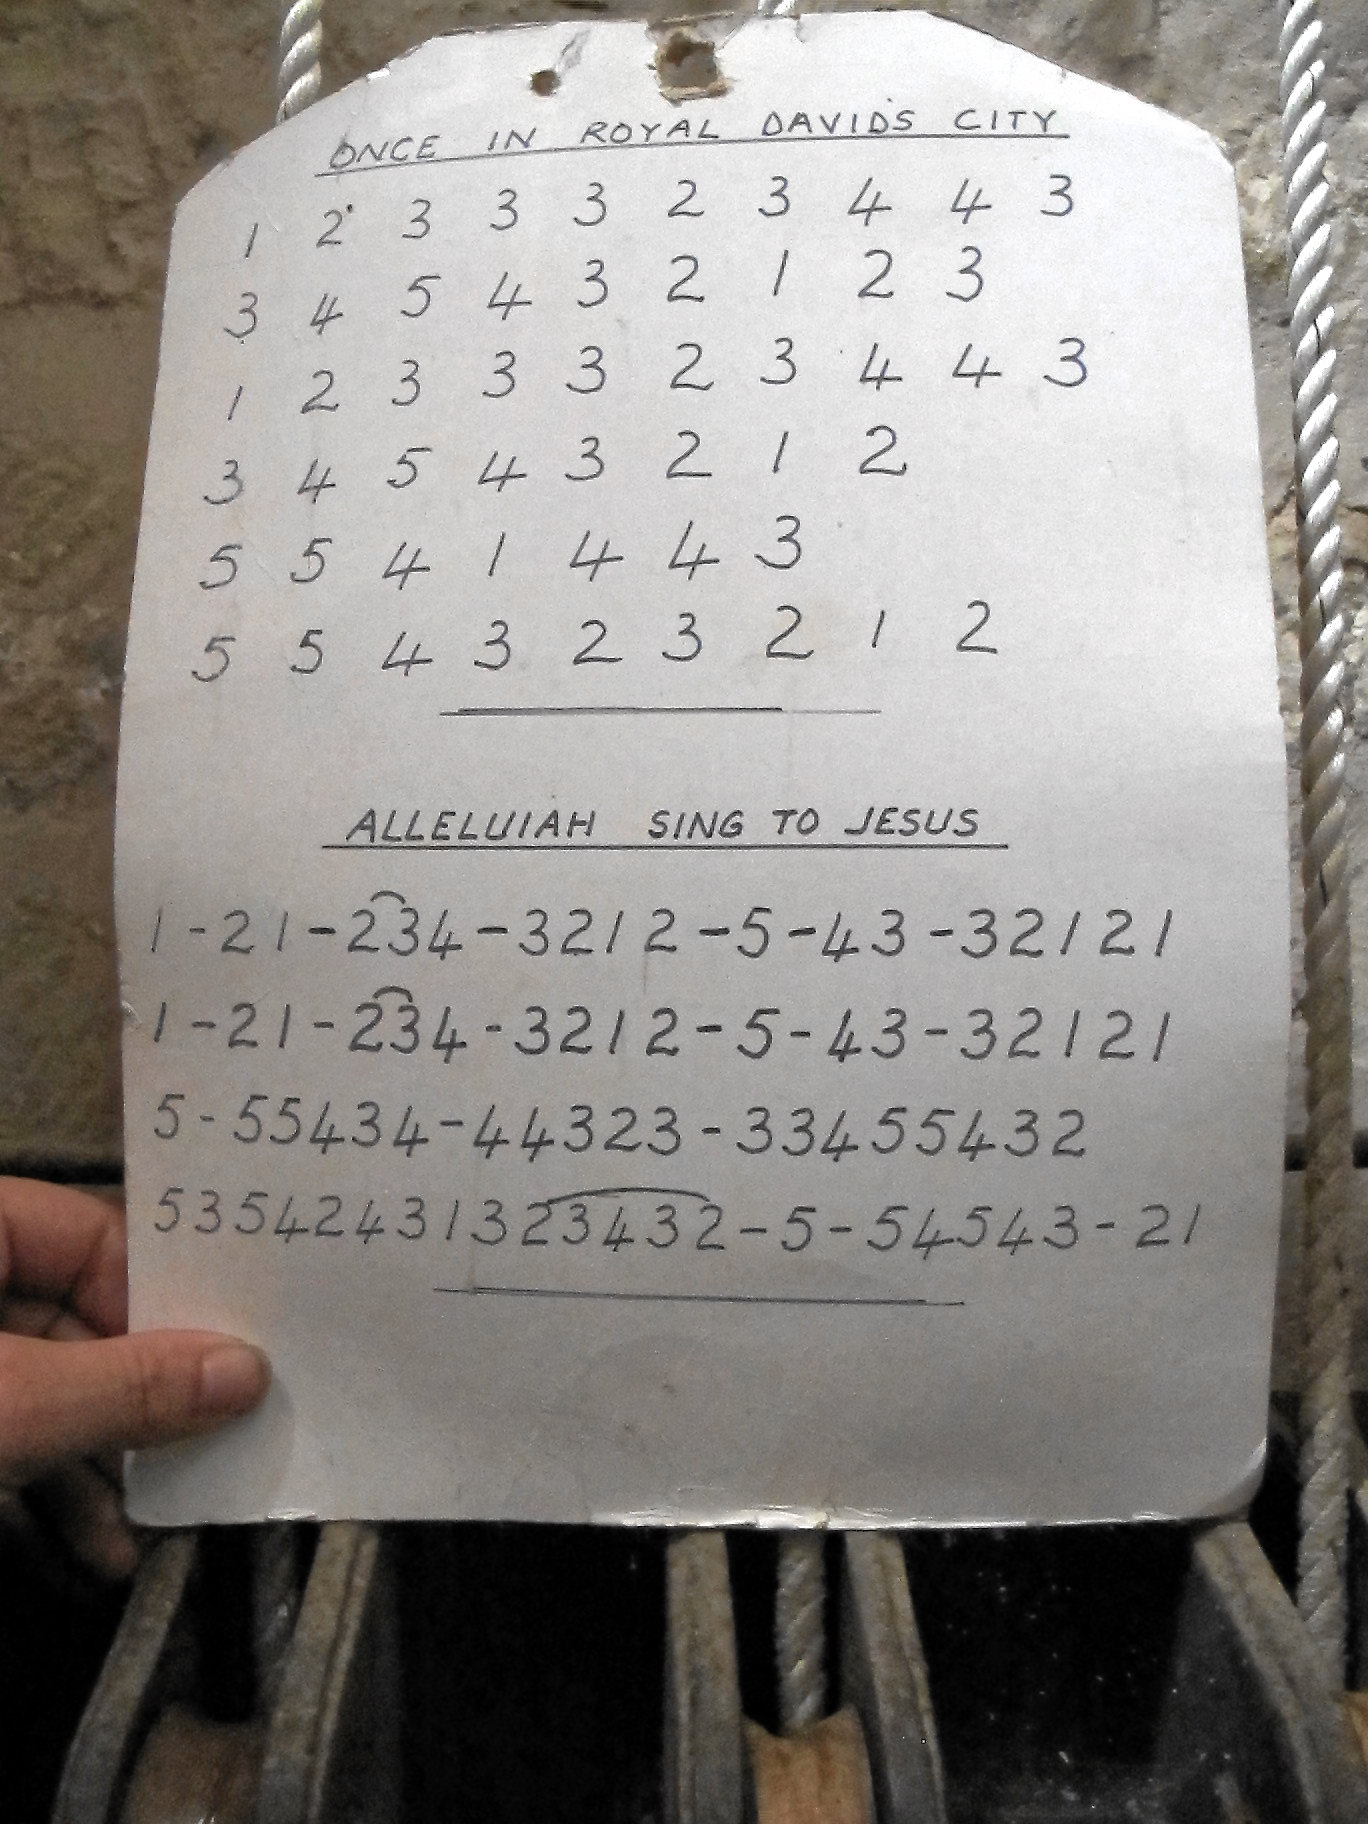 ONCE IN ROYAL DAVID'S CITY
1 2 3 3 3 2 3 4 4 3
3 4 5 4 3 2 1 2 3
1 2 3 3 3 2 3 4 4 3
3 4 5 4 3 2 1 2
5 5 4 1 4 4 3
5 5 4 3 2 3 2 1 2
ALLELUIAH SING TO JESUS
1-21-234-3212-5-43-32121
1-21-234-3212-5-43-32121
5-55434-44323-33455432
53542431323432-5-54543-21